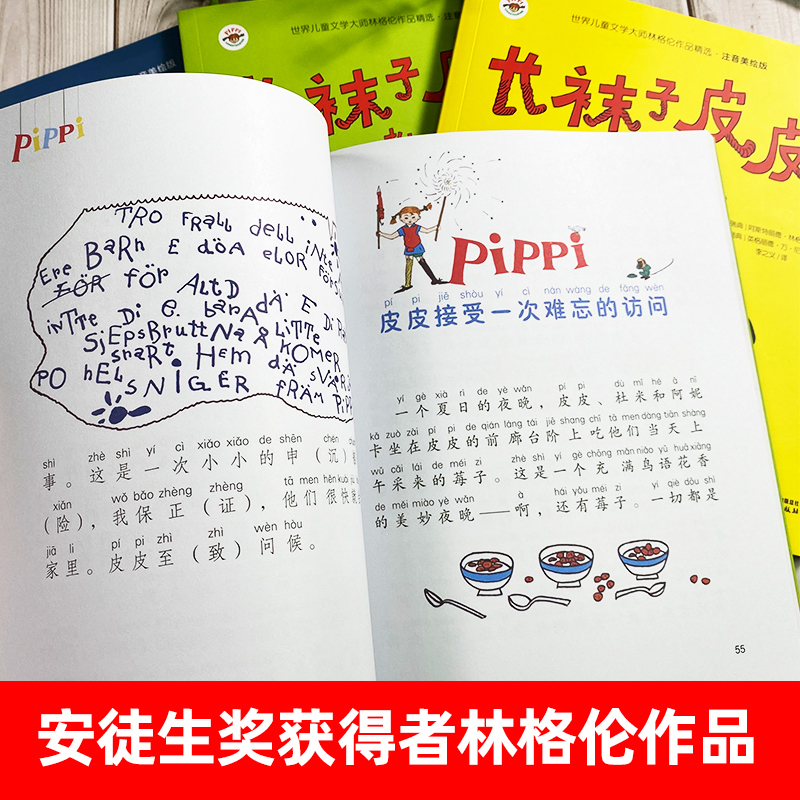 世界儿童文学大师林格伦作品精选·注音美绘版
世界儿童文学大师林格伦作品精选·注音美绘版
袜子皮
长袜子皮皮
李之义/译
PiPPi
TRO FRALL dell inte
Ere BARn E döA elOR förs
FÖR för ALTD
inTTe Di e. barA dÄ E Di
SjEpsBruttNa Å LiTTe
snart Hem KOMER
PO hELSNIGER dÄ svÄR
FRÄM PiPPi
shì zhè shì yí cì xiǎo xiǎo de shēn chén
事。这是一次小小的申（沉）
xiǎn wǒ bǎo zhèng zhèng tā men hěn kuài
（险），我保正（证），他们很快
jiā lǐ pí pi zhì zhì wèn hòu
家里。皮皮至（致）问候。
PiPPi
pí pi jiē shòu yí cì nán wàng de fǎng wèn
皮皮接受一次难忘的访问
yí gè xià rì de yè wǎn pí pi dù mǐ hé ā nī
一个夏日的夜晚，皮皮、杜米和阿妮
kǎ zuò zài pí pi de qián láng tái jiē shang chī tā men dàng tiān shàng
卡坐在皮皮的前廊台阶上吃他们当天上
wǔ cǎi lái de méi zi zhè shì yí gè chōng mǎn niǎo yǔ huā xiāng
午采来的莓子。这是一个充满鸟语花香
de měi miào yè wǎn à hái yǒu méi zi yí qiè dōu shì
的美妙夜晚——啊，还有莓子。一切都是
55
安徒生奖获得者林格伦作品